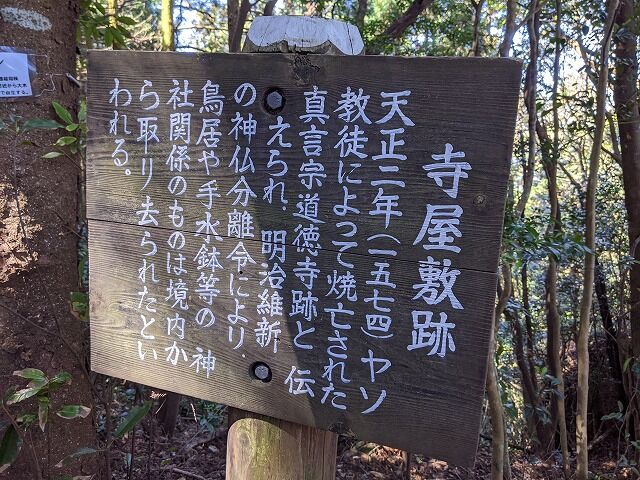 寺屋敷跡
天正二年(一五七四)ヤソ
教徒によって焼亡された
真言宗道徳寺跡と伝
えられ、明治維新
の神仏分離令により、
鳥居や手水鉢等の神
社関係のものは境内か
ら取り去られたとい
われる。